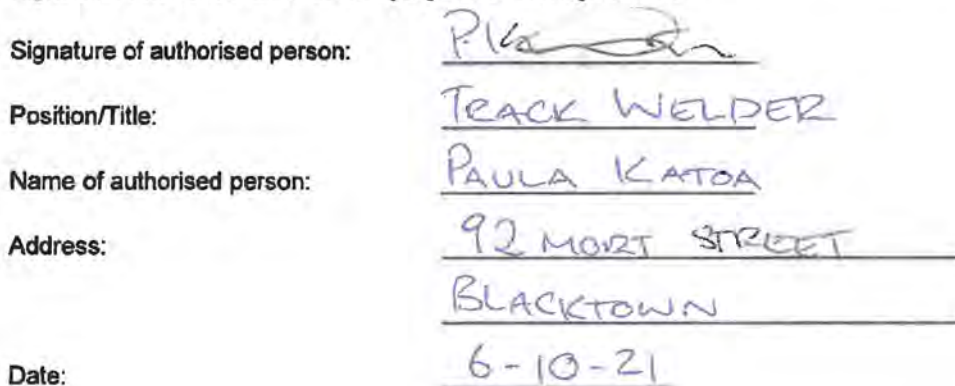 Signature of authorised person:
Position/Title: TRACK WELDER
Name of authorised person: PAULA KATOA
Address: 92 MORT STREET
BLACKTOWN
Date: 6-10-21